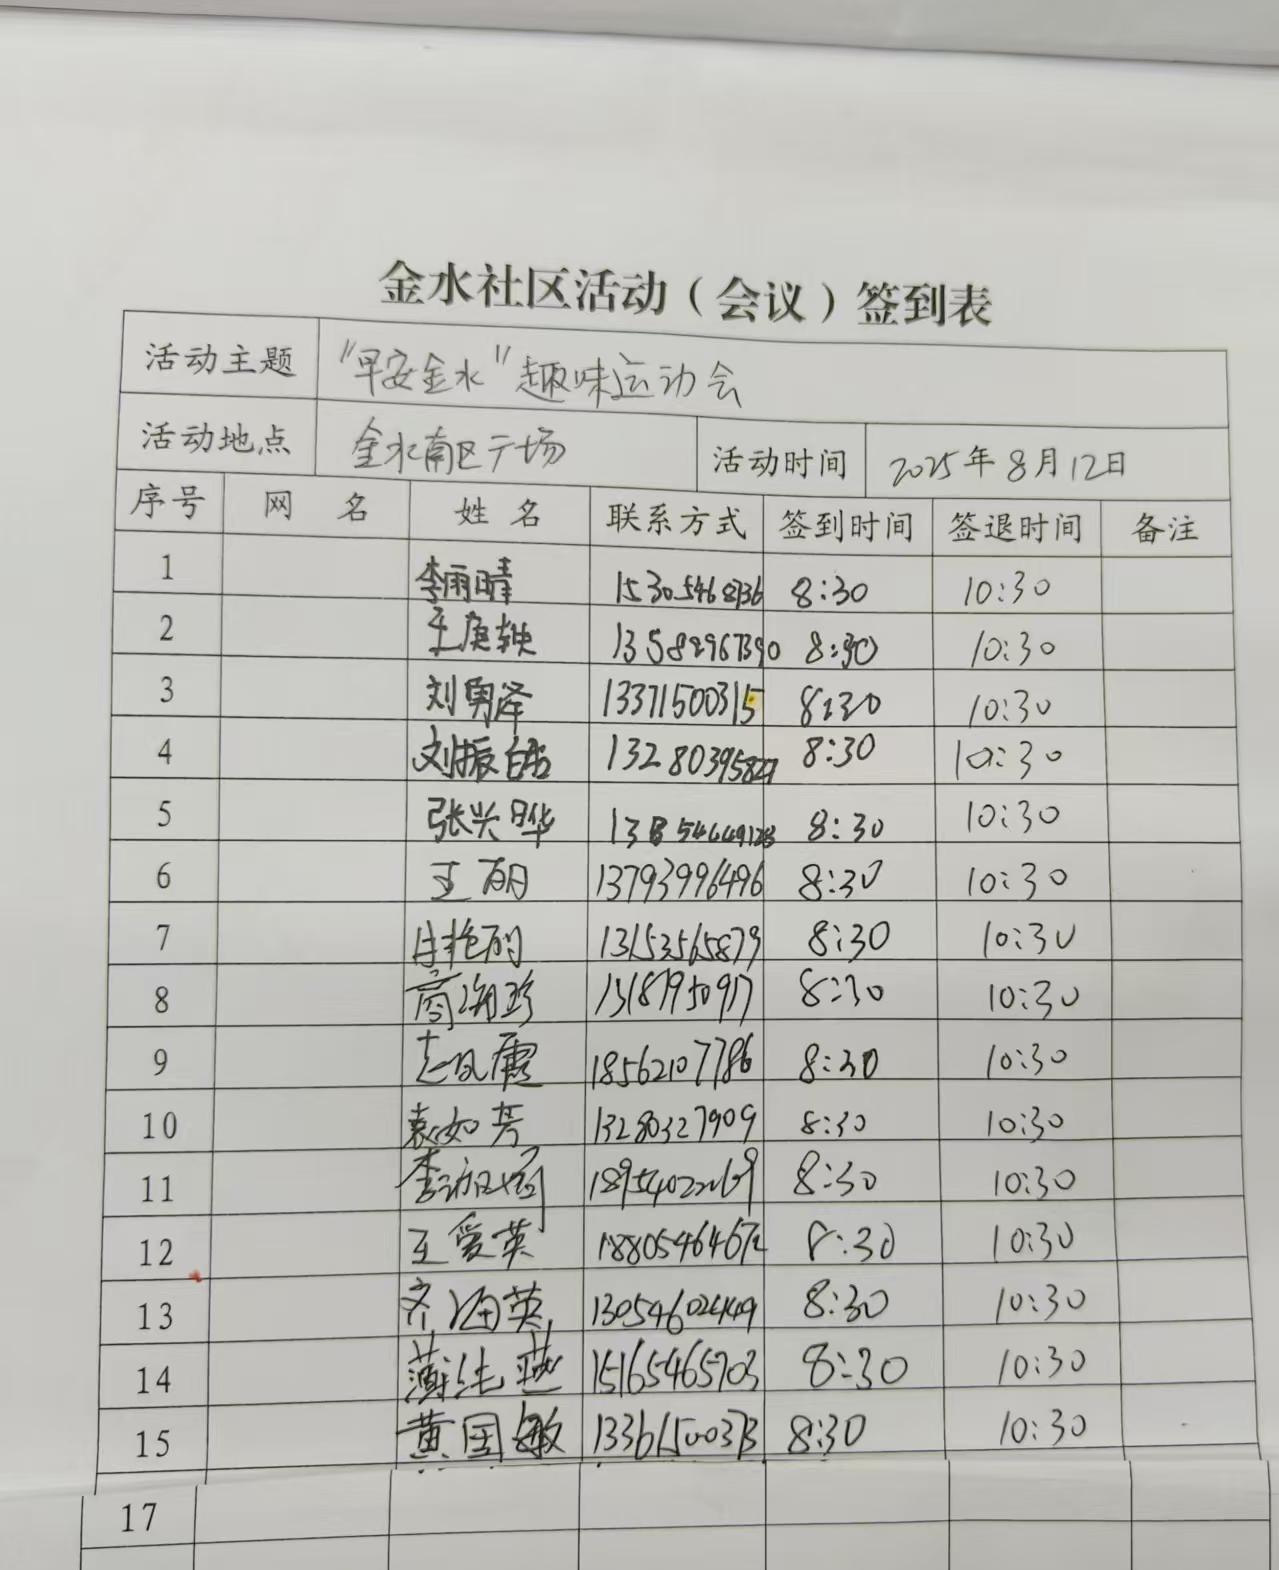 金水社区活动（会议）签到表
活动主题 "早安金水"趣味运动会
活动地点 金水南区广场 活动时间 2025年8月12日
序号 网 名 姓 名 联系方式 签到时间 签退时间 备注
1 李雨晴 15305468736 8:30 10:30
2 王庚轶 13582967390 8:30 10:30
3 刘勇泽 13371500315 8:30 10:30
4 刘振皓 13280395827 8:30 10:30
5 张兴晔 8:30 10:30
6 王丽 13793996496 8:30 10:30
7 13153565879 8:30 10:30
8 商海珍 15187950917 8:30 10:30
9 18562107786 8:30 10:30
10 袁如芳 13280327909 8:30 10:30
11 8:30 10:30
12 王爱英 18805464672 8:30 10:30
13 齐海英 8:30 10:30
14 薄纯燕 15165465703 8:30 10:30
15 黄国敏 13361500373 8:30 10:30
17